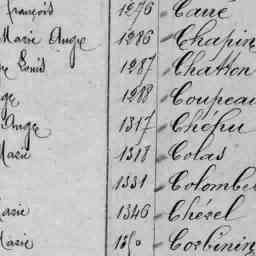 François 1276 Cané
Marie Ange 1286 Chapin
Louis 1287 Chatton
1288 Coupeau
Ange 1317 Chéhu
Marie 1318 Colas
1331 Colombe
Marie 1346 Chésel
Marie 1350 Corbinin